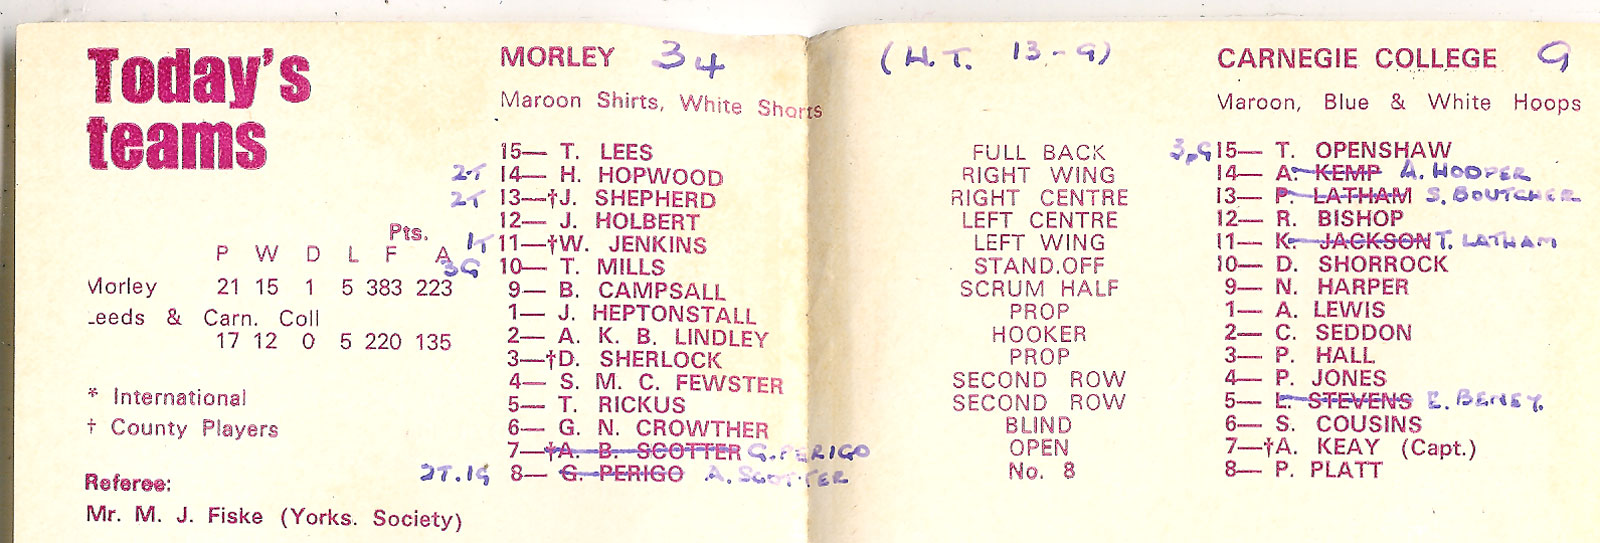 Today's
teams
Pts.
P W D L F A
Morley 21 15 1 5 383 223
Leeds & Carn. Coll
17 12 0 5 220 135
* International
† County Players
Referee:
Mr. M. J. Fiske (Yorks. Society)
MORLEY 34
Maroon Shirts, White Shorts
15— T. LEES
2T 14— H. HOPWOOD
2T 13—†J. SHEPHERD
12— J. HOLBERT
1T 11—†W. JENKINS
3G 10— T. MILLS
9— B. CAMPSALL
1— J. HEPTONSTALL
2— A. K. B. LINDLEY
3—†D. SHERLOCK
4— S. M. C. FEWSTER
5— T. RICKUS
6— G. N. CROWTHER
7—†A. B. SCOTTER G. PERIGO
2T.1G 8— G. PERIGO A. SCOTTER
(H.T. 13-9)
FULL BACK
RIGHT WING
RIGHT CENTRE
LEFT CENTRE
LEFT WING
STAND.OFF
SCRUM HALF
PROP
HOOKER
PROP
SECOND ROW
SECOND ROW
BLIND
OPEN
No. 8
CARNEGIE COLLEGE 9
Maroon, Blue & White Hoops
15— T. OPENSHAW
14— A. KEMP A. HOOPER
13— P. LATHAM S. BOUTCHER
12— R. BISHOP
11— K. JACKSON T. LATHAM
10— D. SHORROCK
9— N. HARPER
1— A. LEWIS
2— C. SEDDON
3— P. HALL
4— P. JONES
5— L. STEVENS E. BENEY.
6— S. COUSINS
7—†A. KEAY (Capt.)
8— P. PLATT